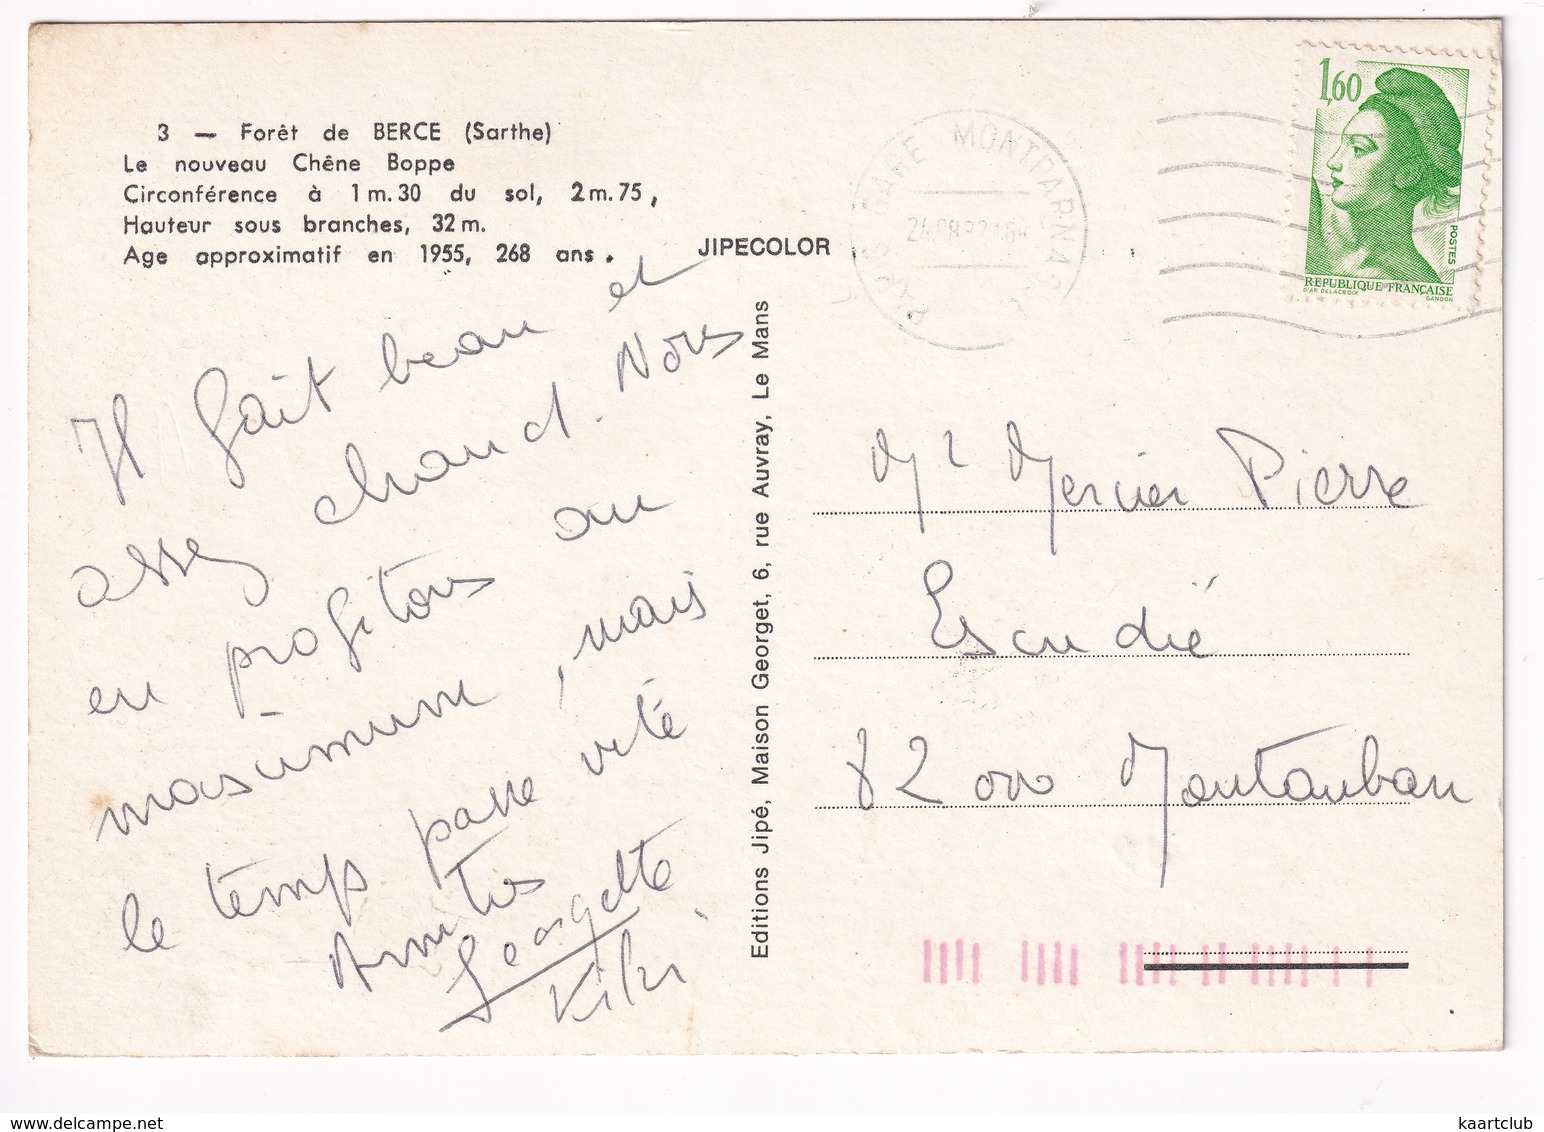 3 — Forêt de BERCE (Sarthe)
Le nouveau Chêne Boppe
Circonférence à 1 m. 30 du sol, 2 m. 75,
Hauteur sous branches, 32 m.
Age approximatif en 1955, 268 ans.
JIPECOLOR
Il fait beau et
assez chaud. Nous
en profitons au
maximum, mais
le temps passe vite
Amitiés
Georgette
Kiki
Editions Jipé, Maison Georget, 6, rue Auvray, Le Mans
PARIS GARE MONTPARNASSE
1,60
POSTES
REPUBLIQUE FRANÇAISE
D'AP. DELACROIX
GANDON
Mr Mercier Pierre
Escudié
82000 Montauban
delcampe.net
kaartclub